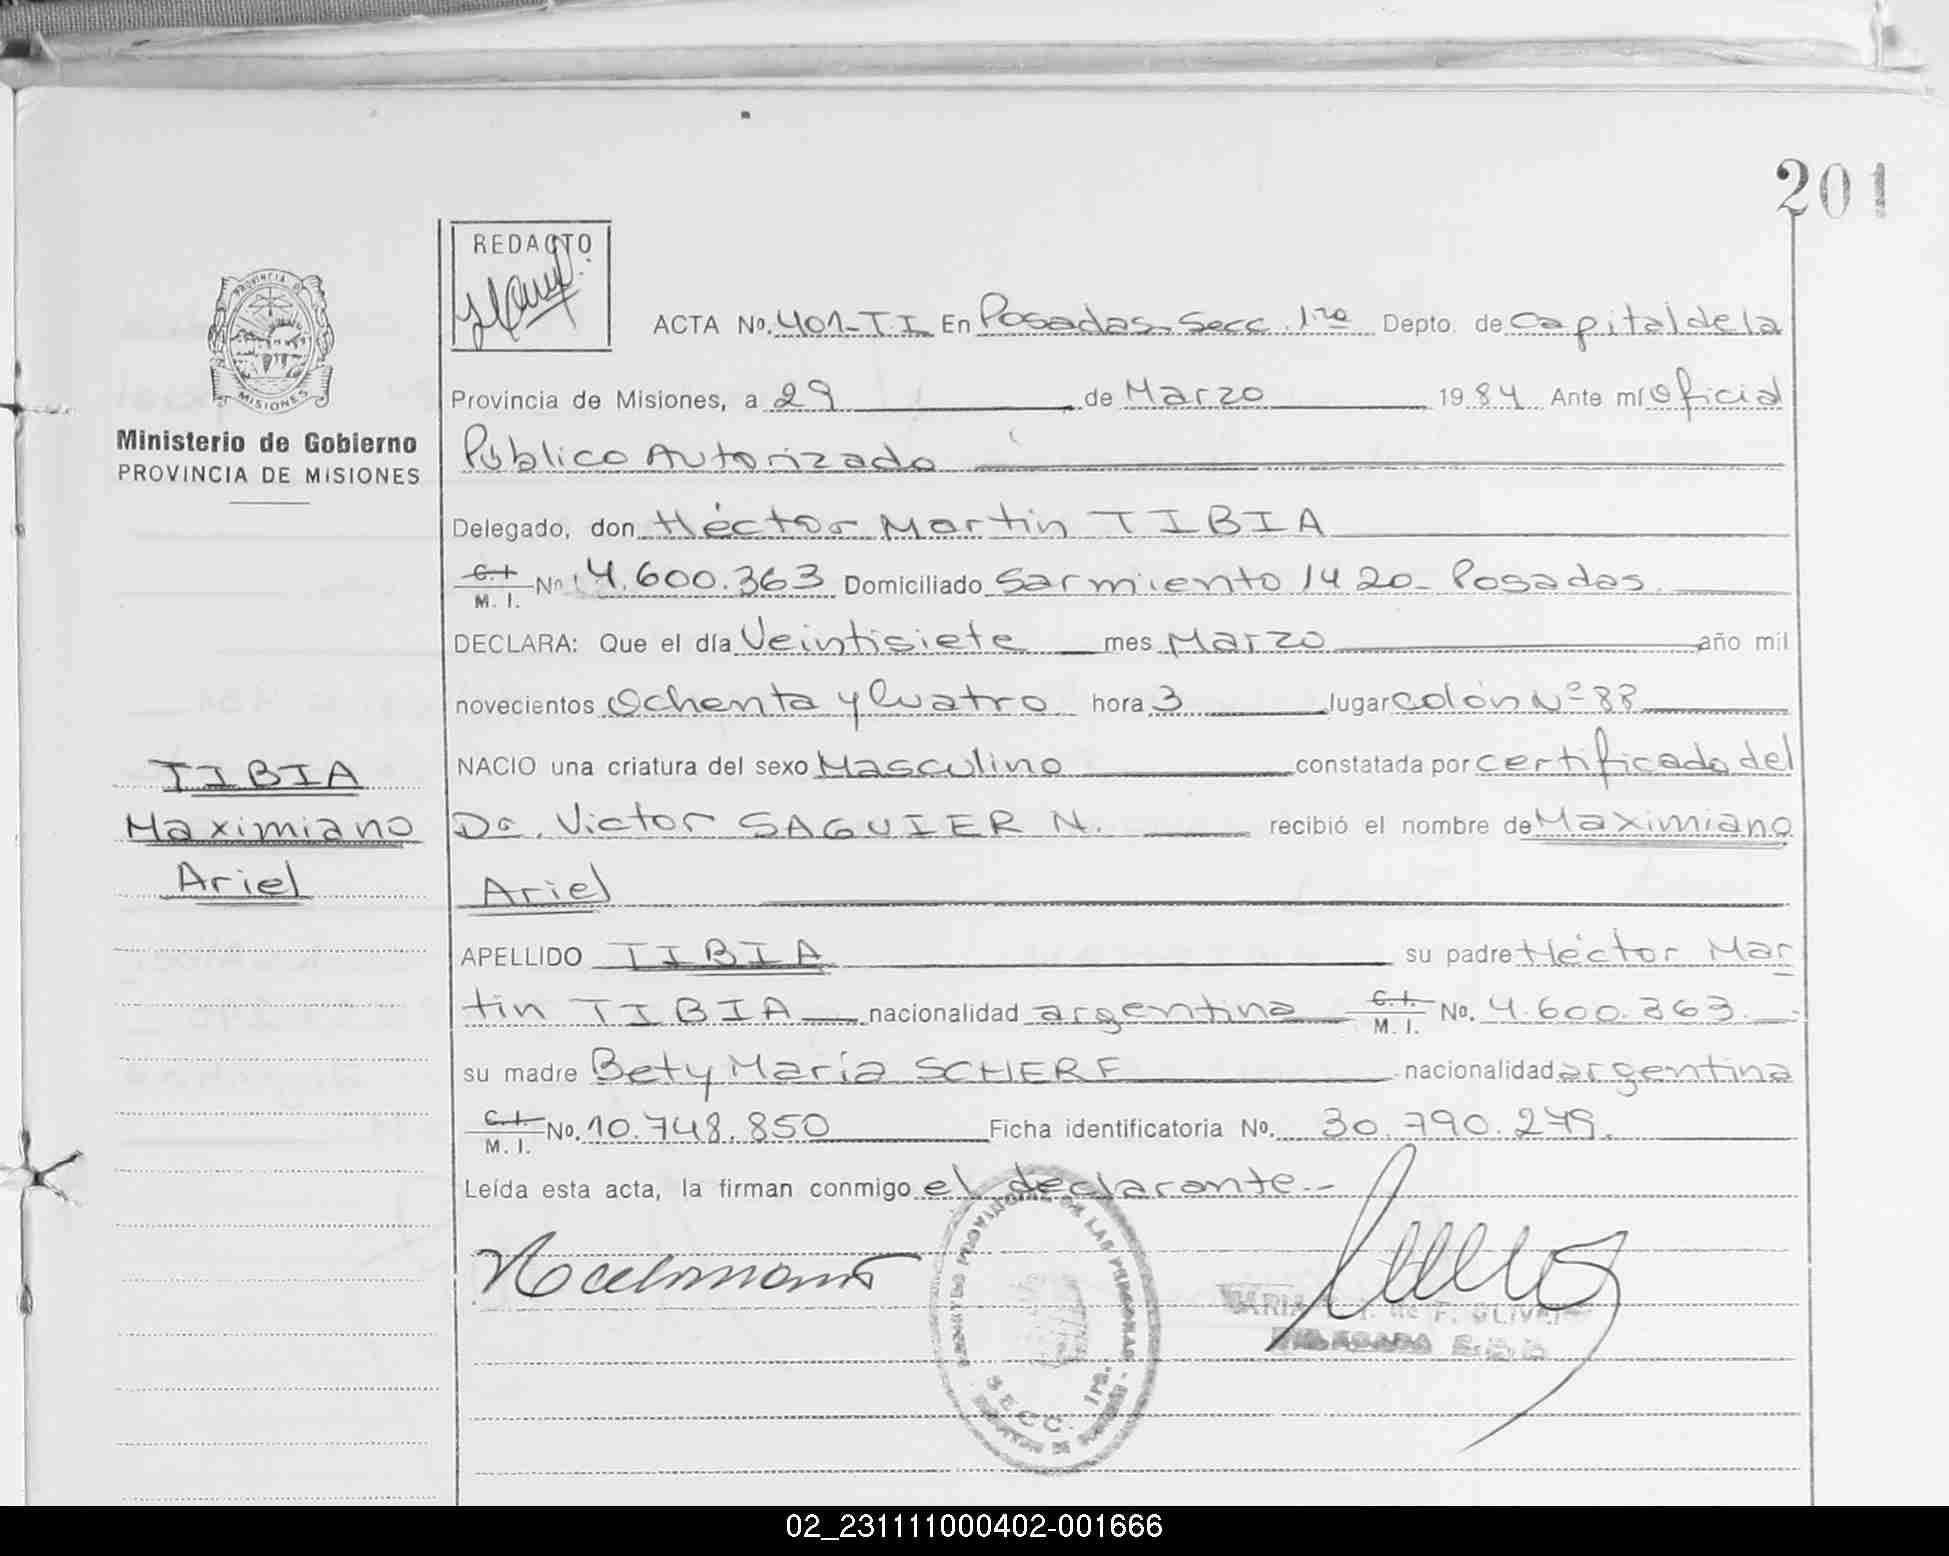 201
REDACTO
ACTA Nº. 401-T.I. En Posadas-Secc. 1ra Depto. de Capital de la
Provincia de Misiones, a 29 de Marzo 1984 Ante mí Oficial
Público Autorizado
Delegado, don Héctor Martin TIBIA
C.I. M.I. Nº 4.600.363 Domiciliado Sarmiento 1420-Posadas.
DECLARA: Que el día Veintisiete mes Marzo año mil
novecientos Ochenta y Cuatro hora 3 lugar Colón Nº 88
NACIO una criatura del sexo Masculino constatada por certificado del
Dr. Victor SAGUIER N. recibió el nombre de Maximiano
Ariel
APELLIDO TIBIA su padre Héctor Mar
tin TIBIA nacionalidad argentina C.I. M.I. Nº. 4.600.363.
su madre Bety María SCHERF nacionalidad argentina
C.I. M.I. Nº. 10.748.850 Ficha identificatoria Nº. 30.790.279.
Leída esta acta, la firman conmigo el declarante.-
PROVINCIA DE
MISIONES
Ministerio de Gobierno
PROVINCIA DE MISIONES
TIBIA
Maximiano
Ariel
DE LAS PERSONAS
SECC. 1ra.
02_231111000402-001666